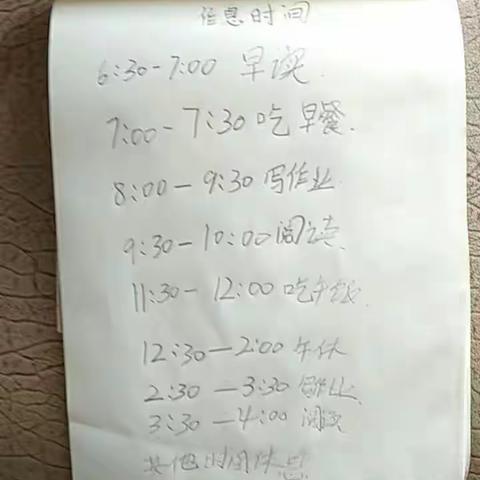 信息时间
6:30-7:00 早读.
7:00-7:30 吃早餐.
8:00-9:30 写作业
9:30-10:00 阅读.
11:30-12:00 吃午饭.
12:30-2:00 午休
2:30-3:30 写作业.
3:30-4:00 阅读
其他时间休息